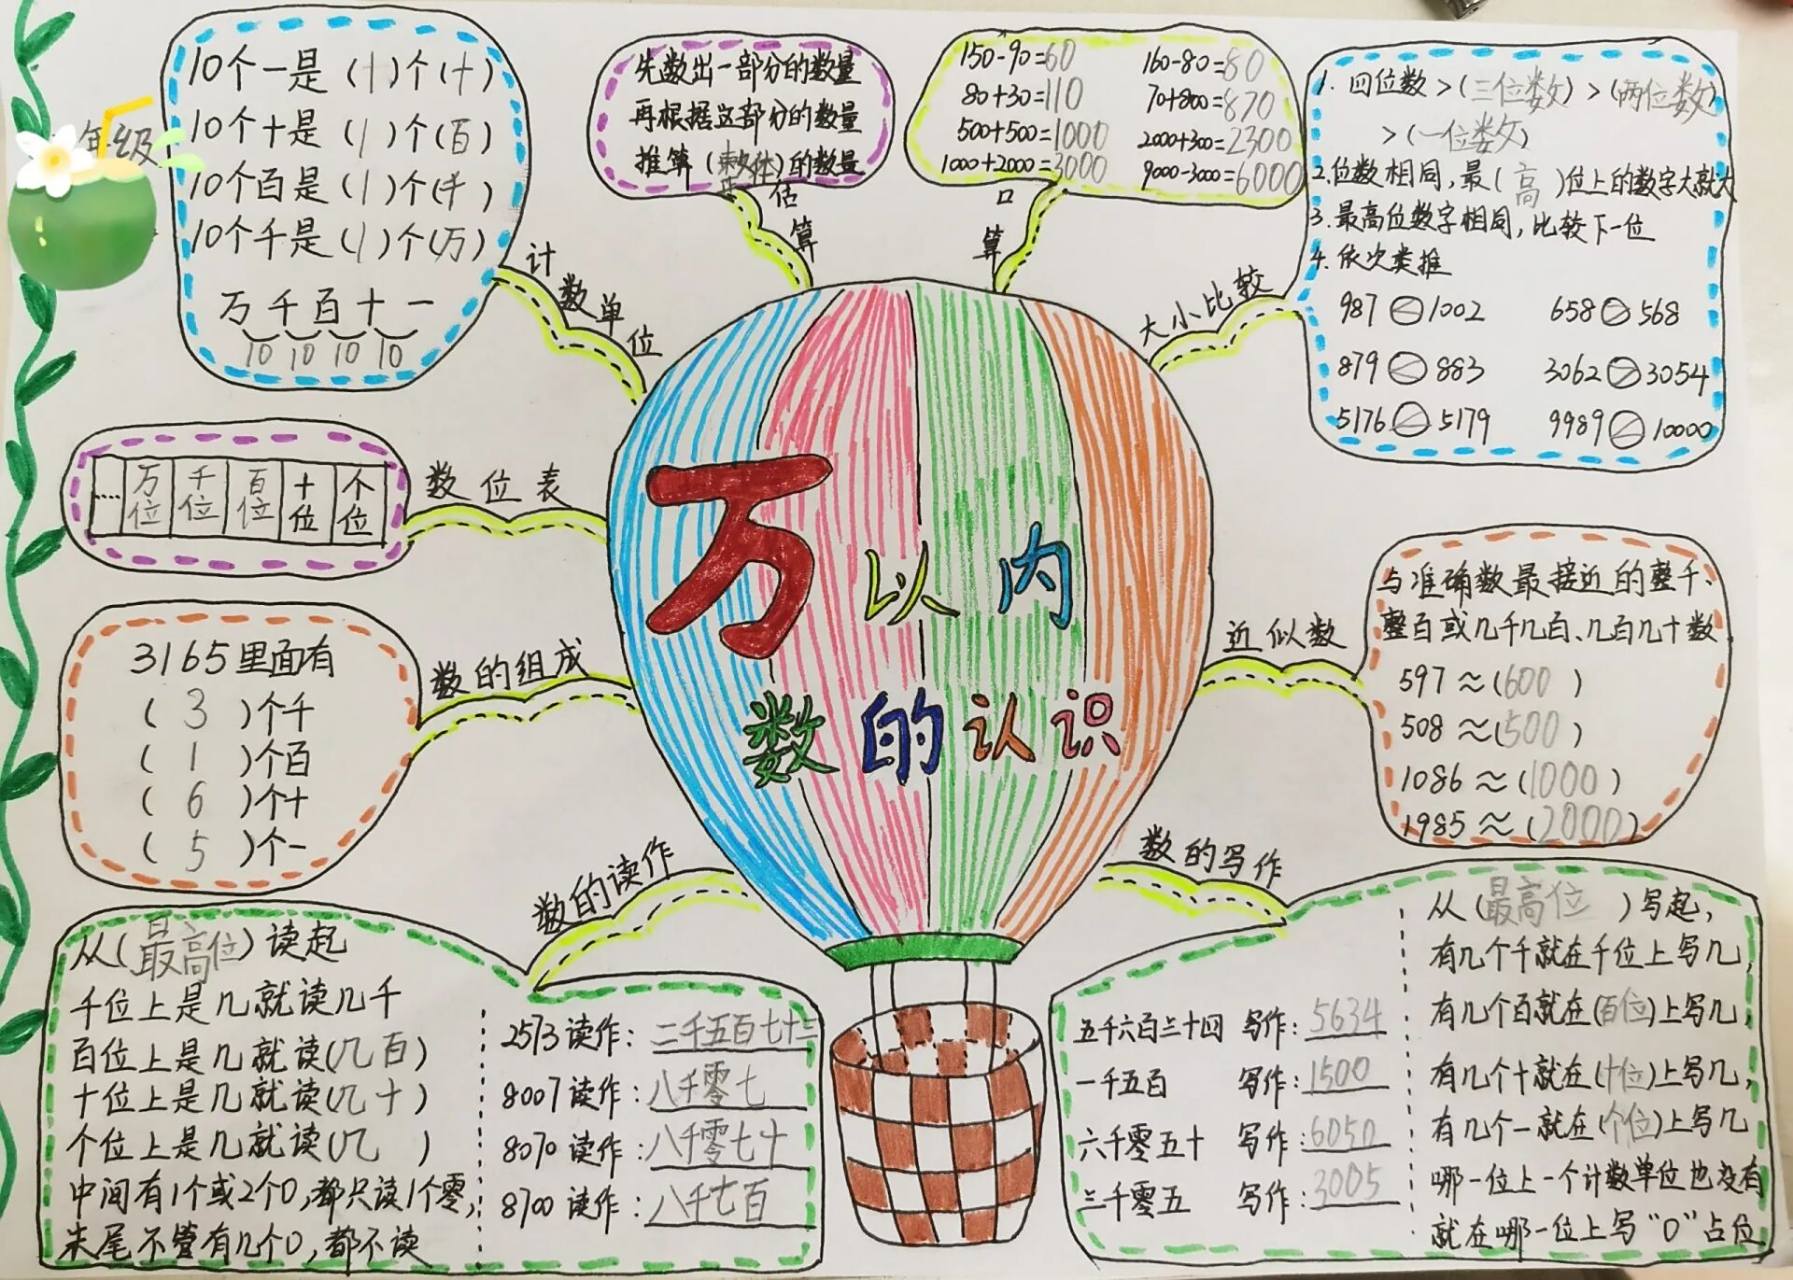 年级
10个一是(十)个(十)
10个十是(1)个(百)
10个百是(1)个(千)
10个千是(1)个(万)
万千百十一
10 10 10 10
计数单位
先数出一部分的数量
再根据这部分的数量
推算(整体)的数量
估算
150-90=60 160-80=80
80+30=110 70+800=870
500+500=1000 2000+300=2300
1000+2000=3000 9000-3000=6000
口算
1. 四位数>(三位数)>(两位数)
>(一位数)
2.位数相同,最(高)位上的数字大就大
3.最高位数字相同,比较下一位
4.依次类推
987 1002 658 568
879 883 3062 3054
5176 5179 9989 10000
大小比较
…… 万位 千位 百位 十位 个位
数位表
万以内
数的认识
3165里面有
(3)个千
(1)个百
(6)个十
(5)个一
数的组成
与准确数最接近的整千、
整百或几千几百、几百几十数
597≈(600)
508≈(500)
1086≈(1000)
1985≈(2000)
近似数
数的读作
从(最高位)读起
千位上是几就读几千
百位上是几就读(几百)
十位上是几就读(几十)
个位上是几就读(几)
中间有1个或2个0,都只读1个零,
末尾不管有几个0,都不读
2573读作:二千五百七十三
8007读作:八千零七
8070读作:八千零七十
8700读作:八千七百
数的写作
五千六百三十四 写作:5634
一千五百 写作:1500
六千零五十 写作:6050
三千零五 写作:3005
从(最高位)写起,
有几个千就在千位上写几,
有几个百就在(百位)上写几,
有几个十就在(十位)上写几,
有几个一就在(个位)上写几
哪一位上一个计数单位也没有
就在哪一位上写“0”占位